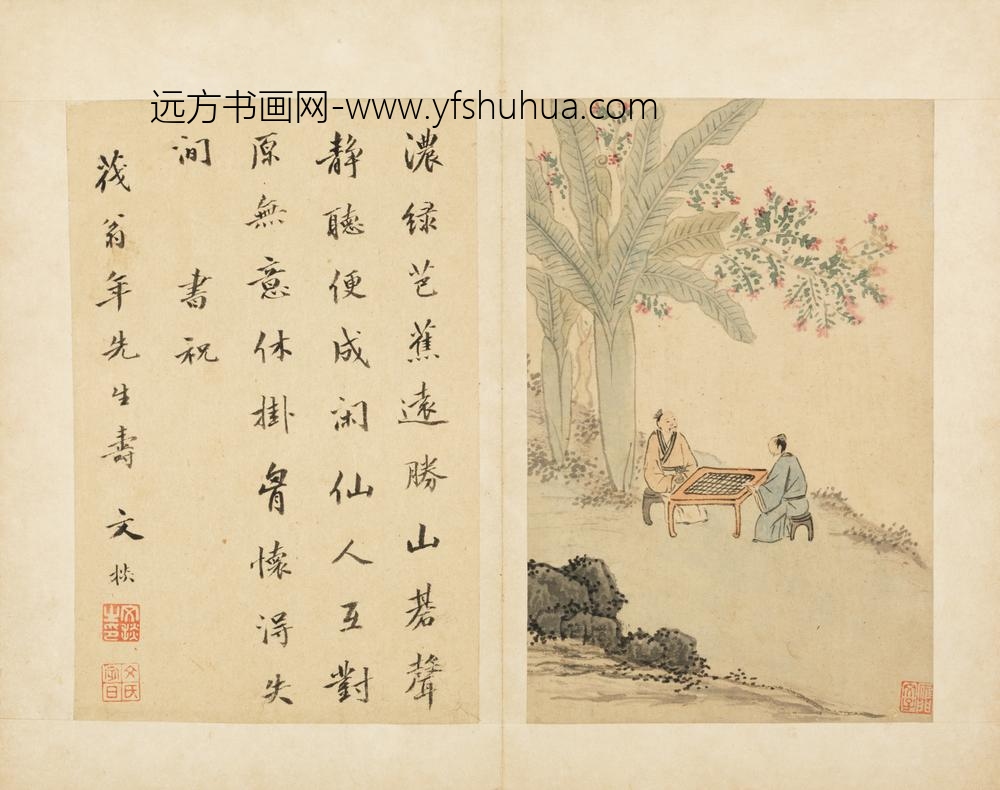 远方书画网-www.yfshuhua.com
濃绿芭蕉遠勝山碁聲
静聽便成闲仙人互對
原無意休掛胷懐淂失
间　書祝
茷翁年先生壽　文掞
文掞之印